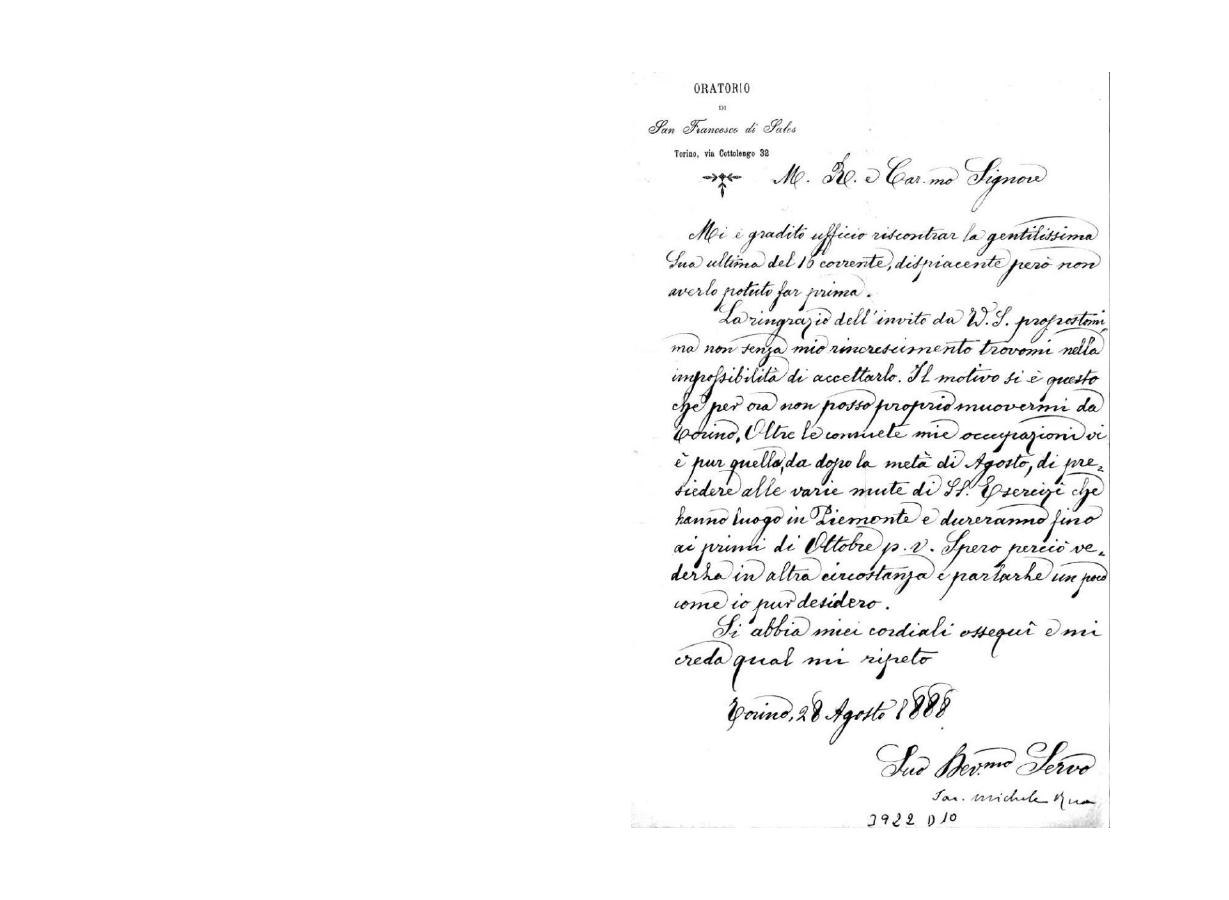 ORATORIO
DI
San Francesco di Sales
Torino, via Cottolengo 32
M. R. e Car.mo Signore
Mi è gradito ufficio riscontrar la gentilissima
Sua ultima del 16 corrente, dispiacente però non
averlo potuto far prima.
La ringrazio dell'invito da V. S. propostomi
ma non senza mio rincrescimento trovomi nella
impossibilità di accettarlo. Il motivo si è questo
che per ora non posso proprio muovermi da
Torino. Oltre le consuete mie occupazioni vi
è pur quella, da dopo la metà di Agosto, di pre=
siedere alle varie mute di SS. Esercizi che
hanno luogo in Piemonte e dureranno fino
ai primi di Ottobre p. v. Spero perciò ve=
derla in altra circostanza e parlarle un poco
come io pur desidero.
Si abbia miei cordiali ossequi e mi
creda qual mi ripeto
Torino, 28 Agosto 1888
Suo Dev.mo Servo
Sac. Michele Rua
3922 D10